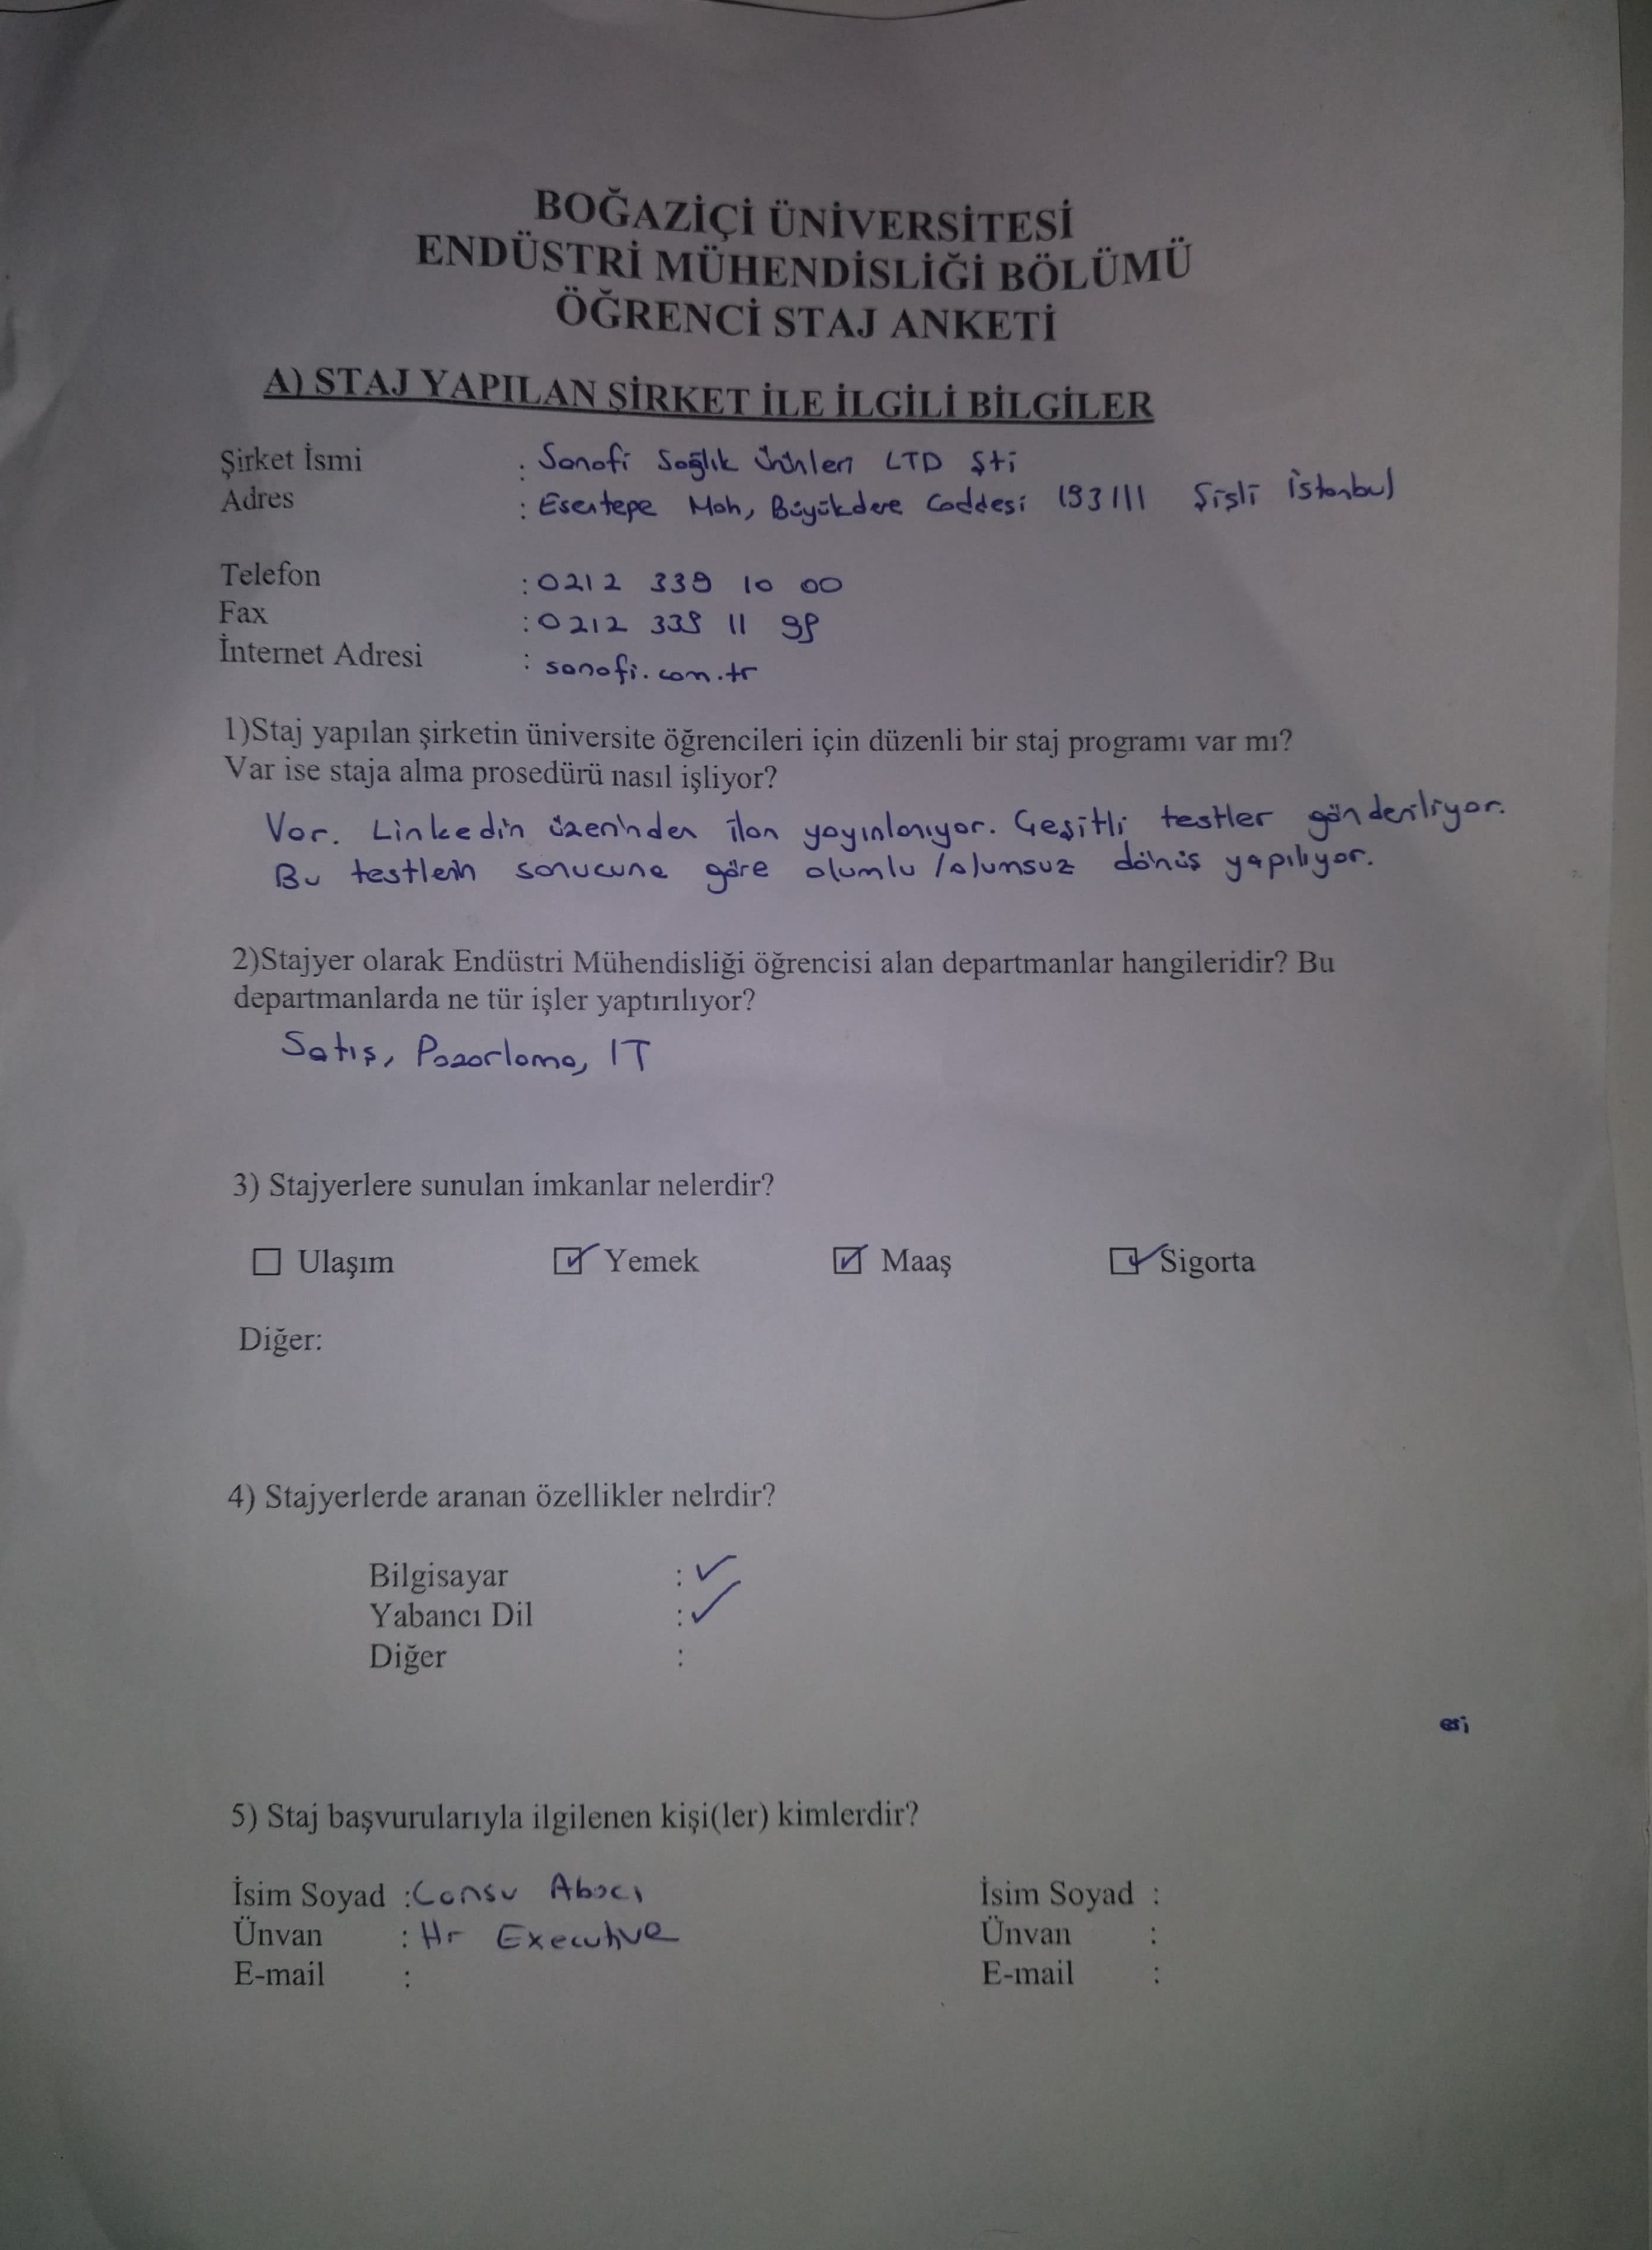 BOĞAZİÇİ ÜNİVERSİTESİ
ENDÜSTRİ MÜHENDİSLİĞİ BÖLÜMÜ
ÖĞRENCİ STAJ ANKETİ
A) STAJ YAPILAN ŞİRKET İLE İLGİLİ BİLGİLER
Şirket İsmi : Sanofi Sağlık Ürünleri LTD Şti
Adres : Esentepe Mah, Büyükdere Caddesi 193/11 Şişli İstanbul
Telefon : 0212 339 10 00
Fax : 0212 339 11 99
İnternet Adresi : sanofi.com.tr
1)Staj yapılan şirketin üniversite öğrencileri için düzenli bir staj programı var mı?
Var ise staja alma prosedürü nasıl işliyor?
Var. Linkedin üzerinden ilan yayınlanıyor. Çeşitli testler gönderiliyor.
Bu testlerin sonucuna göre olumlu/olumsuz dönüş yapılıyor.
2)Stajyer olarak Endüstri Mühendisliği öğrencisi alan departmanlar hangileridir? Bu
departmanlarda ne tür işler yaptırılıyor?
Satış, Pazarlama, IT
3) Stajyerlere sunulan imkanlar nelerdir?
☐ Ulaşım ☑ Yemek ☑ Maaş ☑ Sigorta
Diğer:
4) Stajyerlerde aranan özellikler nelrdir?
Bilgisayar : ✓
Yabancı Dil : ✓
Diğer :
5) Staj başvurularıyla ilgilenen kişi(ler) kimlerdir?
İsim Soyad : Cansu Abacı İsim Soyad :
Ünvan : Hr Executive Ünvan :
E-mail : E-mail :